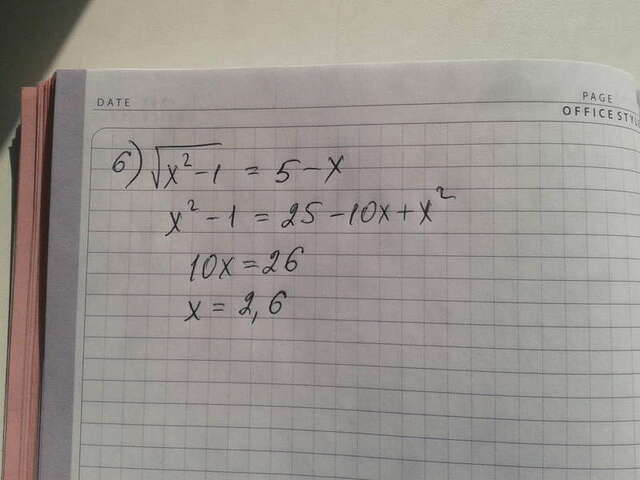 DATE
PAGE
OFFICESTYL
6) √(x² - 1) = 5 - x
x² - 1 = 25 - 10x + x²
10x = 26
x = 2,6